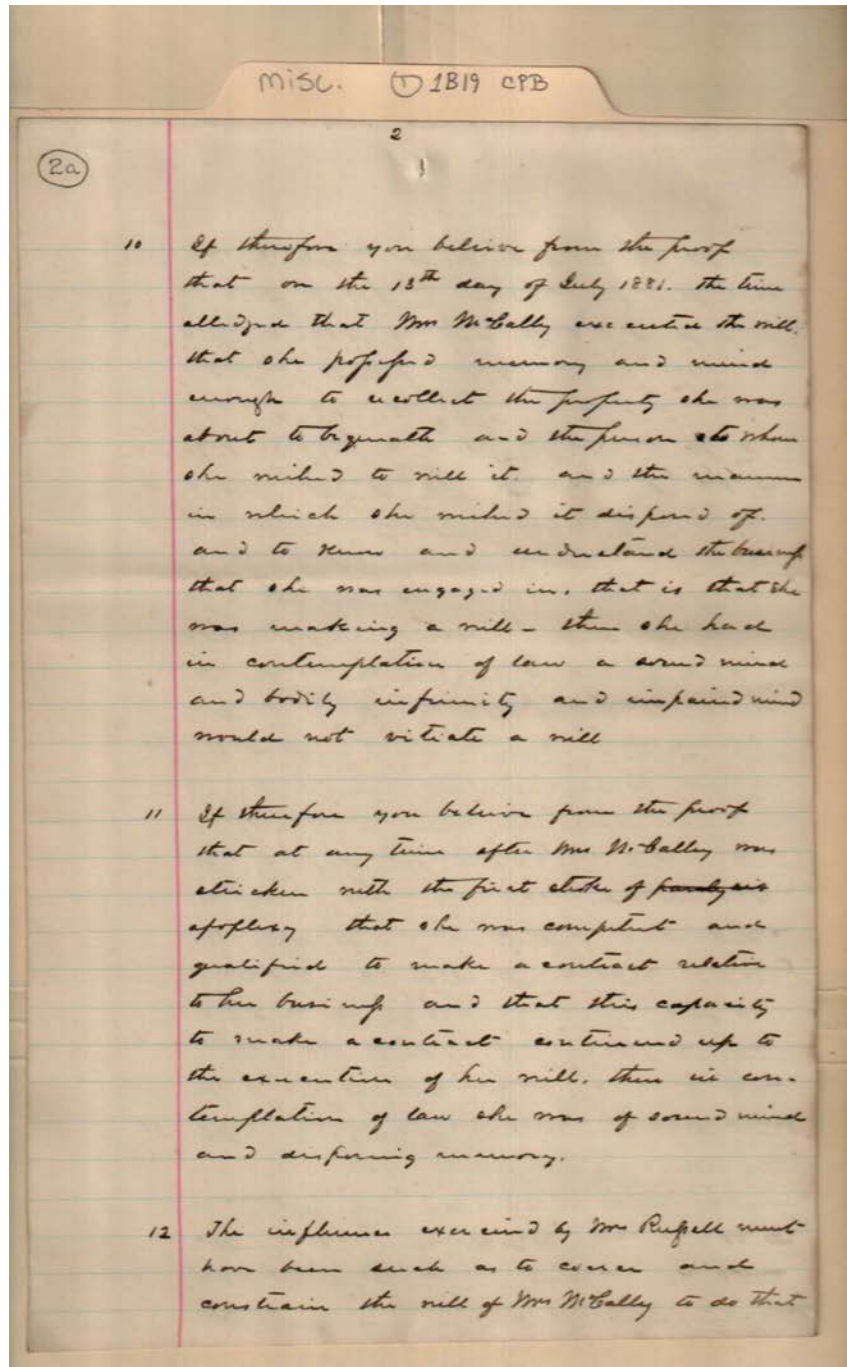 misc. ① 1B19 CPB
2
2a
10 If therefore you believe from the proof
that on the 13th day of July 1881. the time
alledged that Mrs McCalley executed the will.
that she possessed memory and mind
enough to recollect the property she was
about to bequeath and the person to whom
she wished to will it. and the manner
in which she wished it disposed of.
and to know and understand the business
that she was engaged in. that is that she
was making a will - then she had
in contemplation of law a sound mind
and bodily infirmity and impaired mind
would not vitiate a will
11 If therefore you believe from the proof
that at any time after Mrs McCalley was
stricken with the first stroke of paralysis
apoplexy that she was competent and
qualified to make a contract relative
to her business and that this capacity
to make a contract continued up to
the execution of her will. then in con-
templation of law she was of sound mind
and disposing memory.
12 The influence exercised by Mrs Russell must
have been such as to coerce and
constrain the will of Mrs McCalley to do that